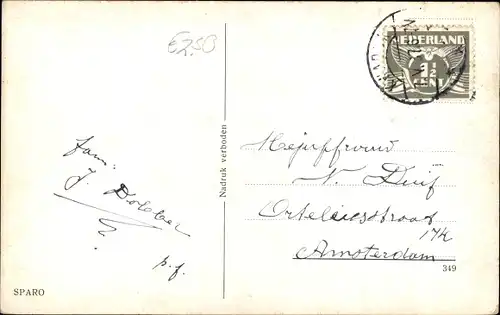 €2,50
NEDERLAND
1½
CENT
Fam.
J. Dobber
p.f.
Nadruk verboden
Mejuffrouw
N. Duif
Orteliusstraat
Amsterdam
349
SPARO